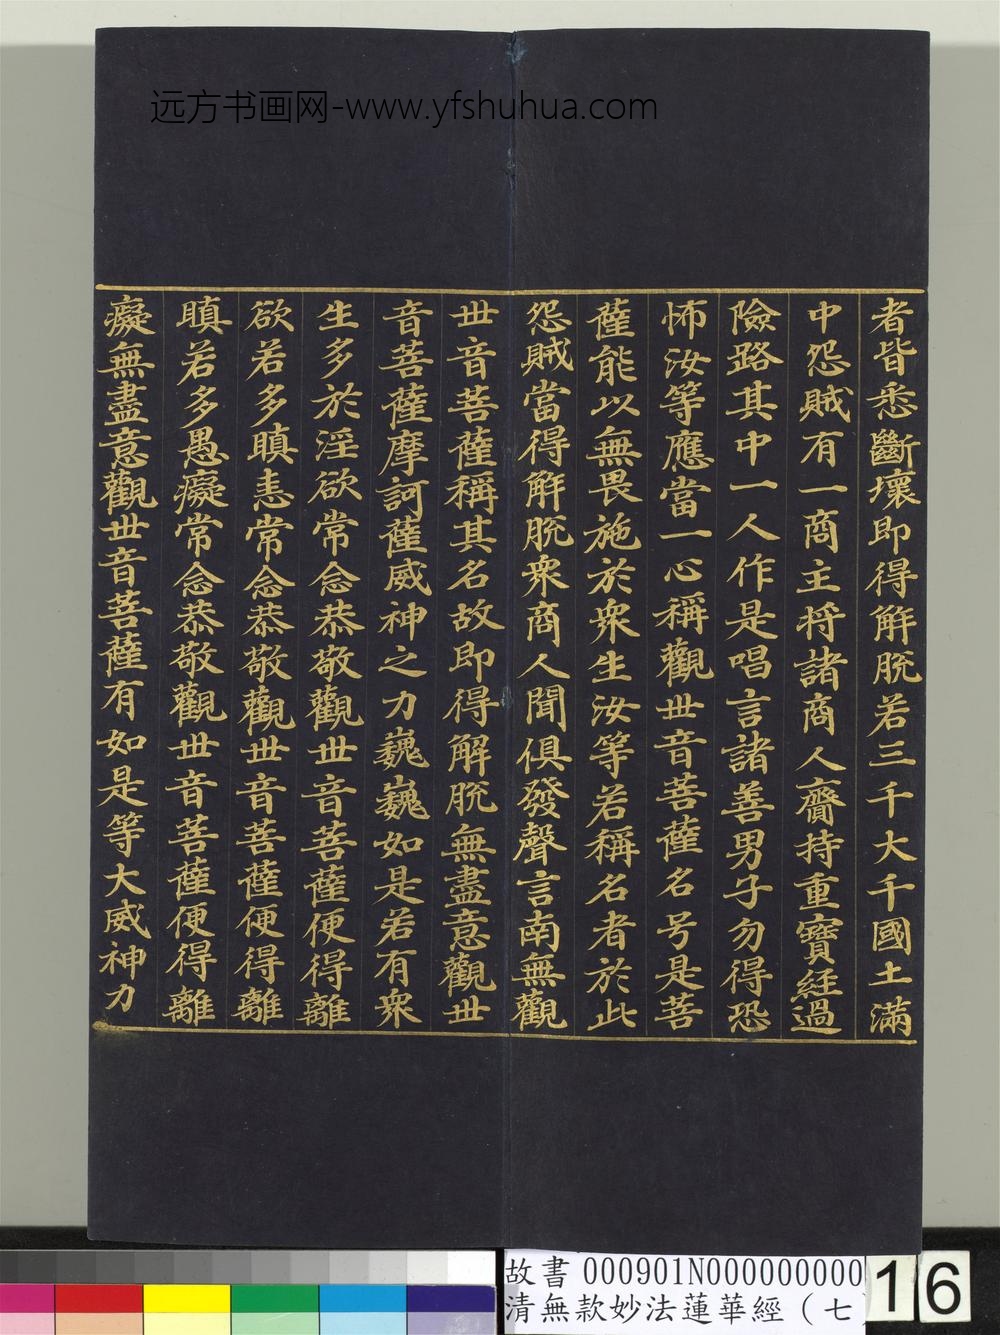 远方书画网-www.yfshuhua.com
者皆悉斷壞即得解脫若三千大千國土滿
中怨賊有一商主將諸商人齎持重寶經過
險路其中一人作是唱言諸善男子勿得恐
怖汝等應當一心稱觀世音菩薩名号是菩
薩能以無畏施於眾生汝等若稱名者於此
怨賊當得解脫眾商人聞俱發聲言南無觀
世音菩薩稱其名故即得解脫無盡意觀世
音菩薩摩訶薩威神之力巍巍如是若有眾
生多於淫欲常念恭敬觀世音菩薩便得離
欲若多瞋恚常念恭敬觀世音菩薩便得離
瞋若多愚癡常念恭敬觀世音菩薩便得離
癡無盡意觀世音菩薩有如是等大威神力
故書000901N000000000
清無款妙法蓮華經（七
16